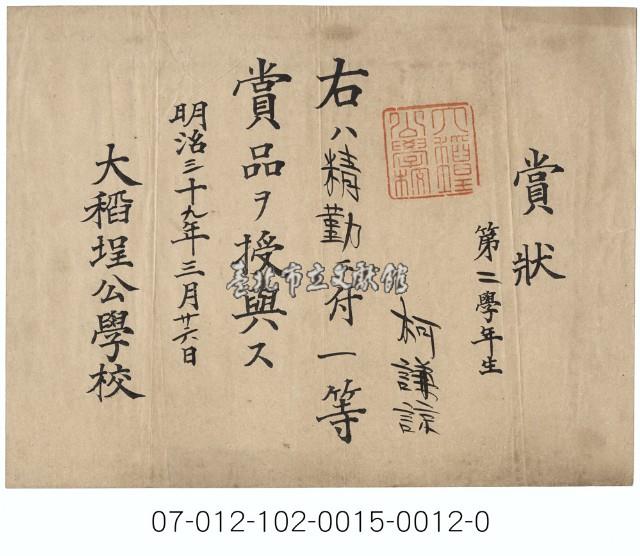 賞狀
第二學年生
柯謙諒
大稻埕公學校
右ハ精勤ニ付一等
賞品ヲ授與ス
明治三十九年三月廿六日
大稻埕公學校
臺北市立文獻館
07-012-102-0015-0012-0